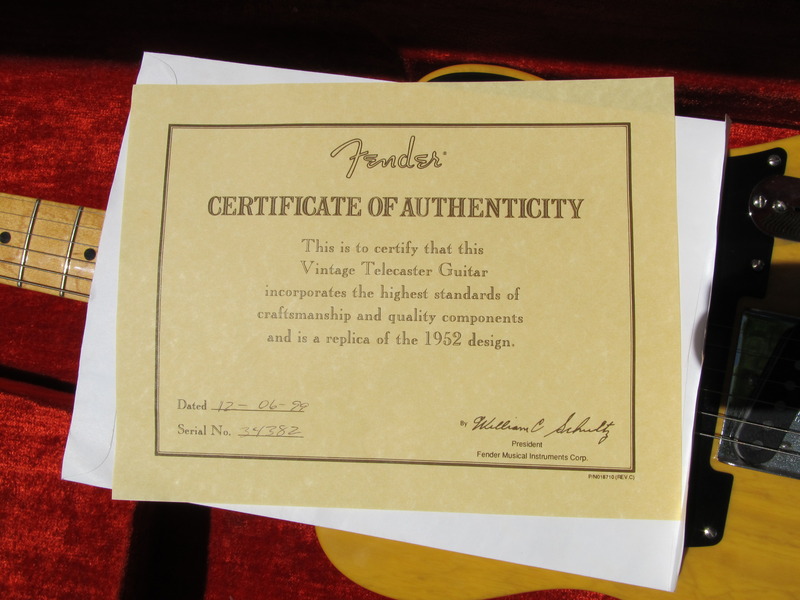 Fender
CERTIFICATE OF AUTHENTICITY
This is to certify that this
Vintage Telecaster Guitar
incorporates the highest standards of
craftsmanship and quality components
and is a replica of the 1952 design.
Dated 12-06-99
Serial No. 34382
By William C Schultz
President
Fender Musical Instruments Corp.
P/N018710 (REV.C)